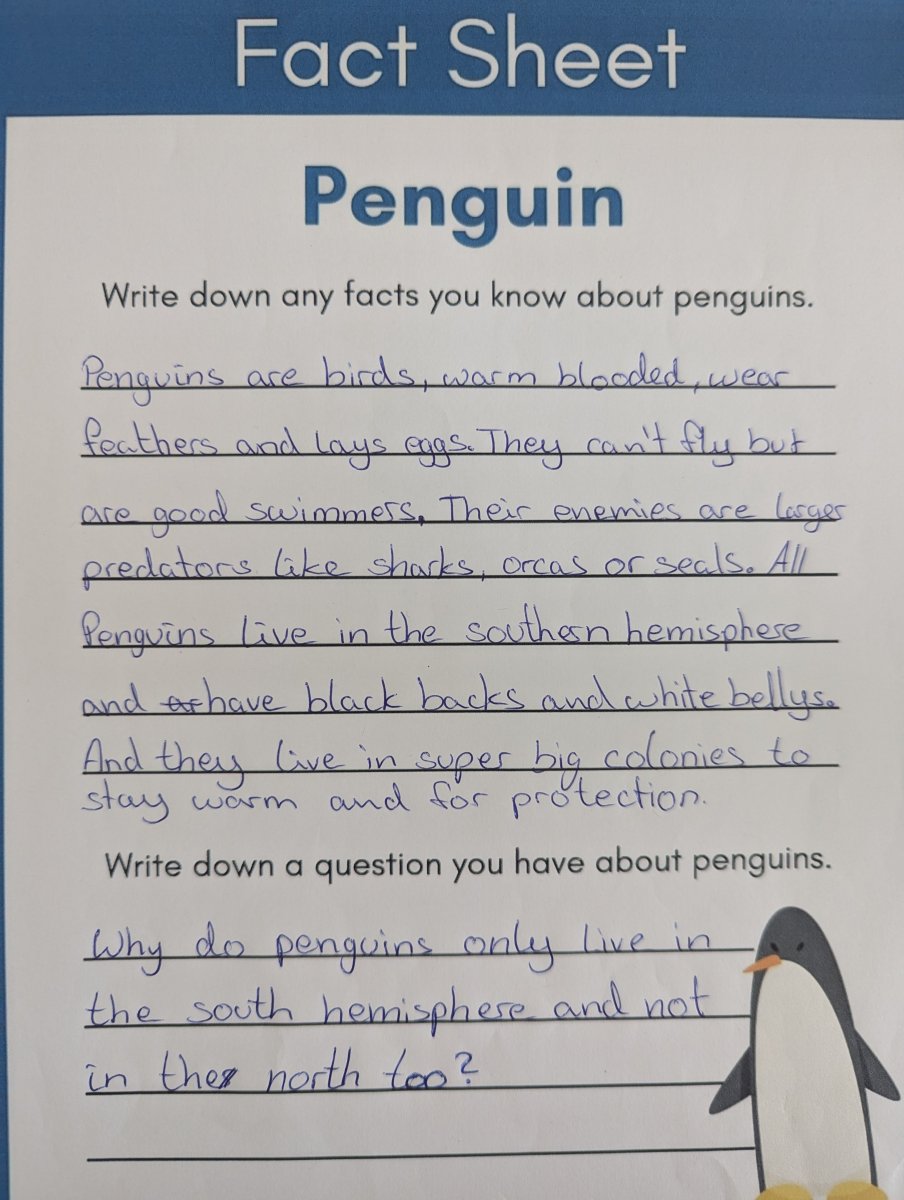 Fact Sheet
Penguin
Write down any facts you know about penguins.
Penguins are birds, warm blooded, wear
feathers and lays eggs. They can't fly but
are good swimmers. Their enemies are larger
predators like sharks, orcas or seals. All
Penguins live in the southern hemisphere
and have black backs and white bellys.
And they live in super big colonies to
stay warm and for protection.
Write down a question you have about penguins.
Why do penguins only live in
the south hemisphere and not
in the north too?